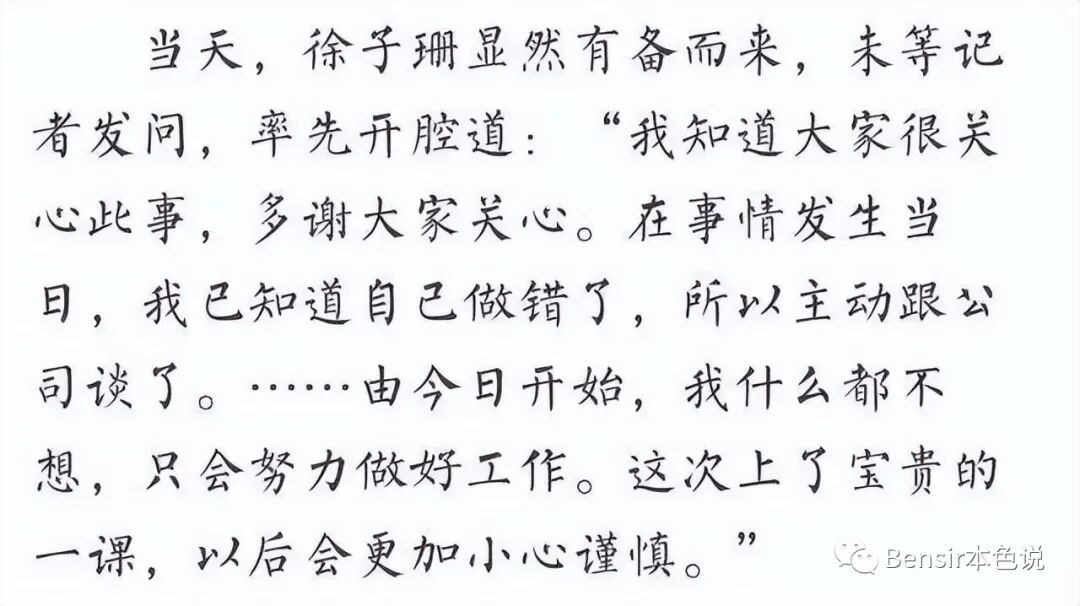 当天，徐子珊显然有备而来，未等记
者发问，率先开腔道：“我知道大家很关
心此事，多谢大家关心。在事情发生当
日，我已知道自己做错了，所以主动跟公
司谈了。……由今日开始，我什么都不
想，只会努力做好工作。这次上了宝贵的
一课，以后会更加小心谨慎。”
Bensir本色说